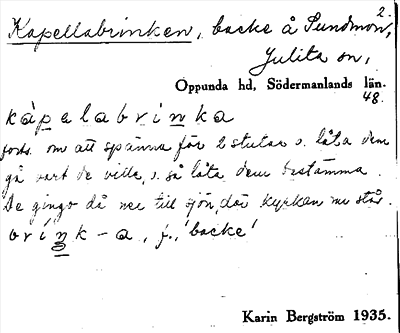 2.
Kapellabrinken, backe å Sundmon,
Julita sn,
Oppunda hd, Södermanlands län.
48.
kàpelabrínka
om att spänna för 2 stutar s. låta dem
gå vart de ville, s. så låta dem bestämma.
De gingo då ner till sjön, där kyrkan nu står.
brínk-a, f., 'backe'
Karin Bergström 1935.